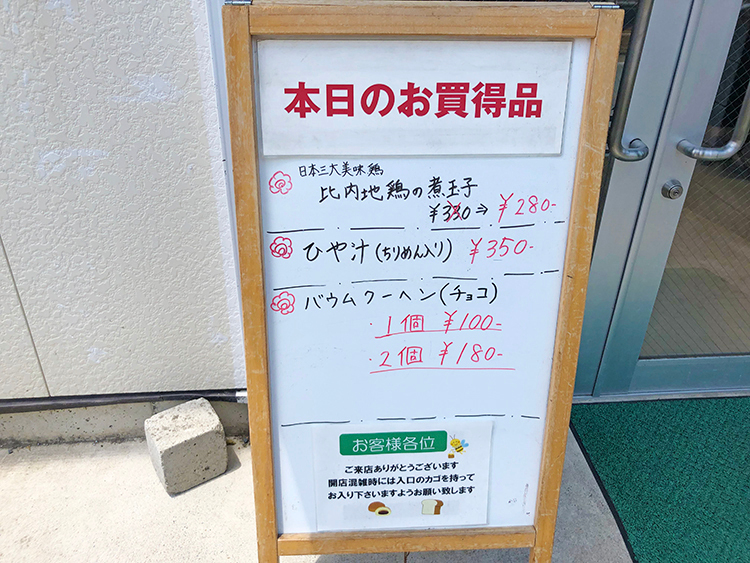 本日のお買得品
日本三大美味鶏
比内地鶏の煮玉子
¥330⇒¥280-
ひや汁(ちりめん入り) ¥350-
バウムクーヘン(チョコ)
・1個 ¥100-
・2個 ¥180-
お客様各位
ご来店ありがとうございます
開店混雑時には入口のカゴを持って
お入り下さいますようお願い致します